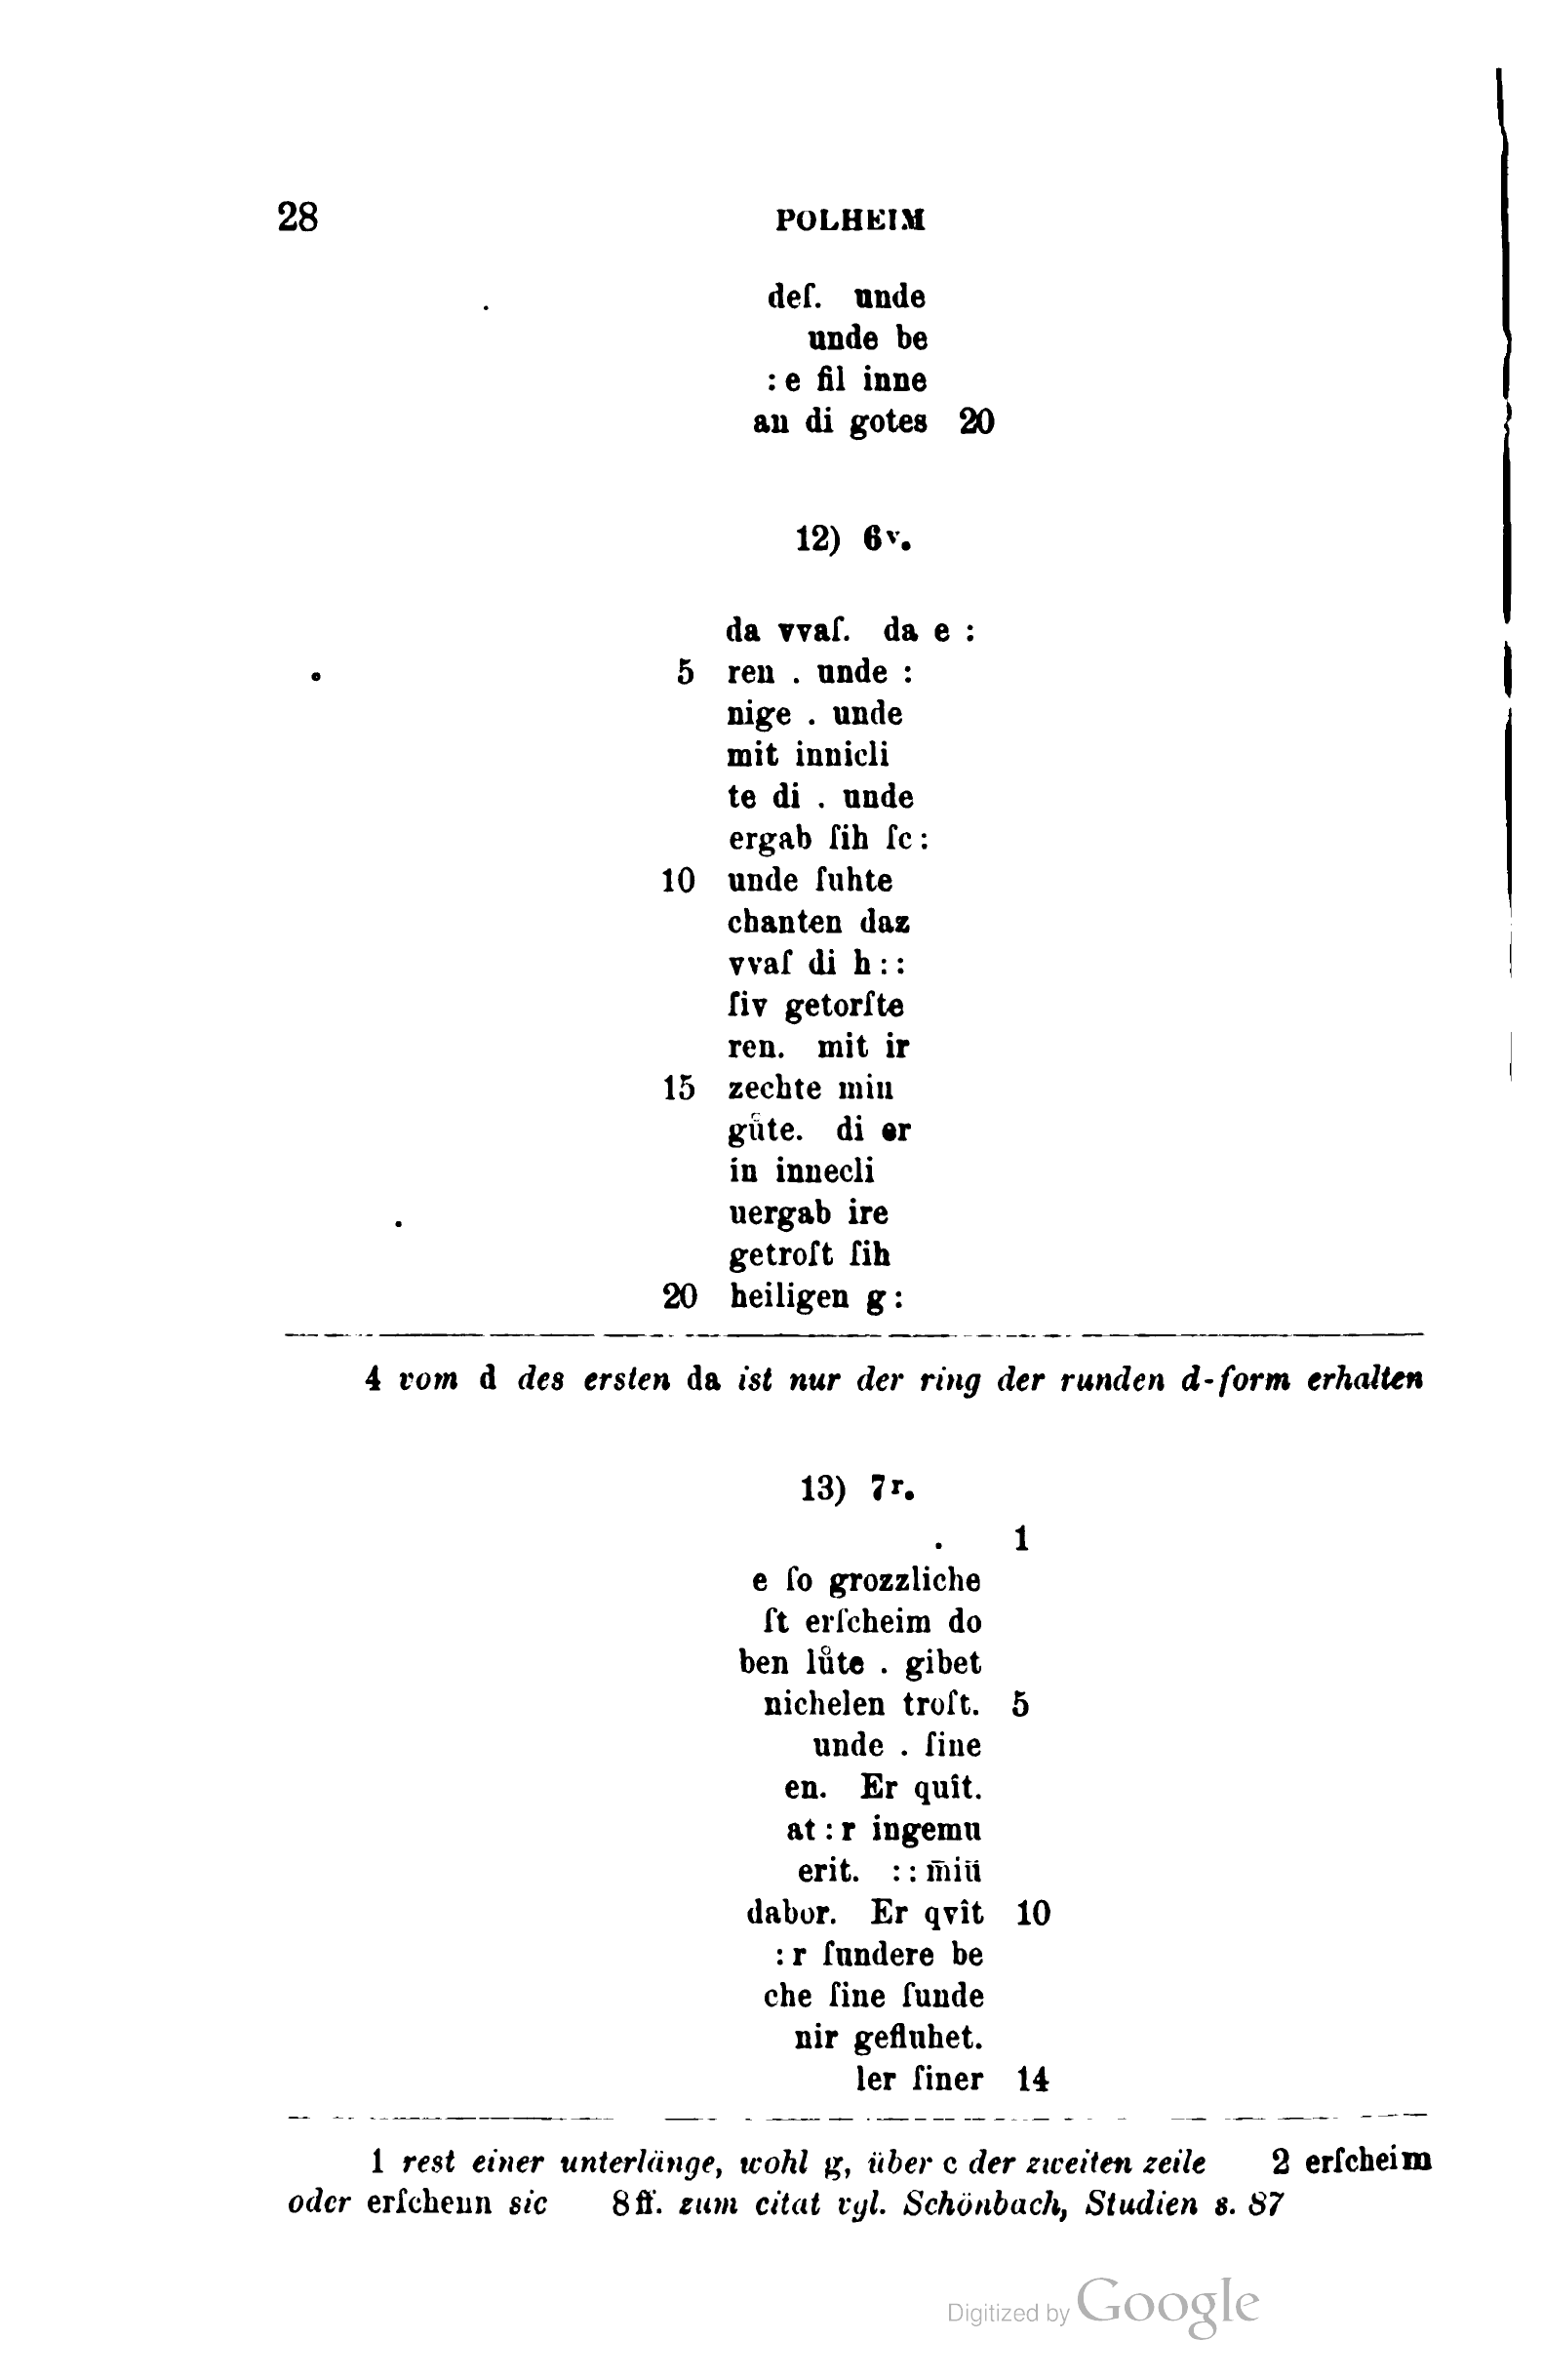 28 POLHEIM
deſ. unde
unde be
:e fil inne
an di gotes 20
12) 6v.
da vvaſ. da e :
5 ren . unde :
nige . unde
mit innicli
te di . unde
ergab ſih ſc:
10 unde ſuhte
chanten daz
vvaſ di h::
ſiv getorſte
ren. mit ir
15 zechte min
gůte. di er
in innecli
uergab ire
getroſt ſih
20 heiligen g:
4 vom d des ersten da ist nur der ring der runden d-form erhalten
13) 7r.
. 1
e ſo grozzliche
ſt erſcheim do
ben lůte . gibet
nichelen troſt. 5
unde . ſine
en. Er quît.
at:r ingemu
erit. ::m̄iū
dabor. Er qvît 10
:r ſundere be
che ſine ſunde
nir gefluhet.
ler ſiner 14
1 rest einer unterlänge, wohl g, über c der zweiten zeile 2 erſcheim
oder erſcheun sic 8 ff. zum citat vgl. Schönbach, Studien s. 87
Digitized by Google